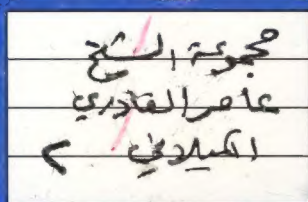 مجموعة الشيخ
عامر القادري
الكيلاني ٢